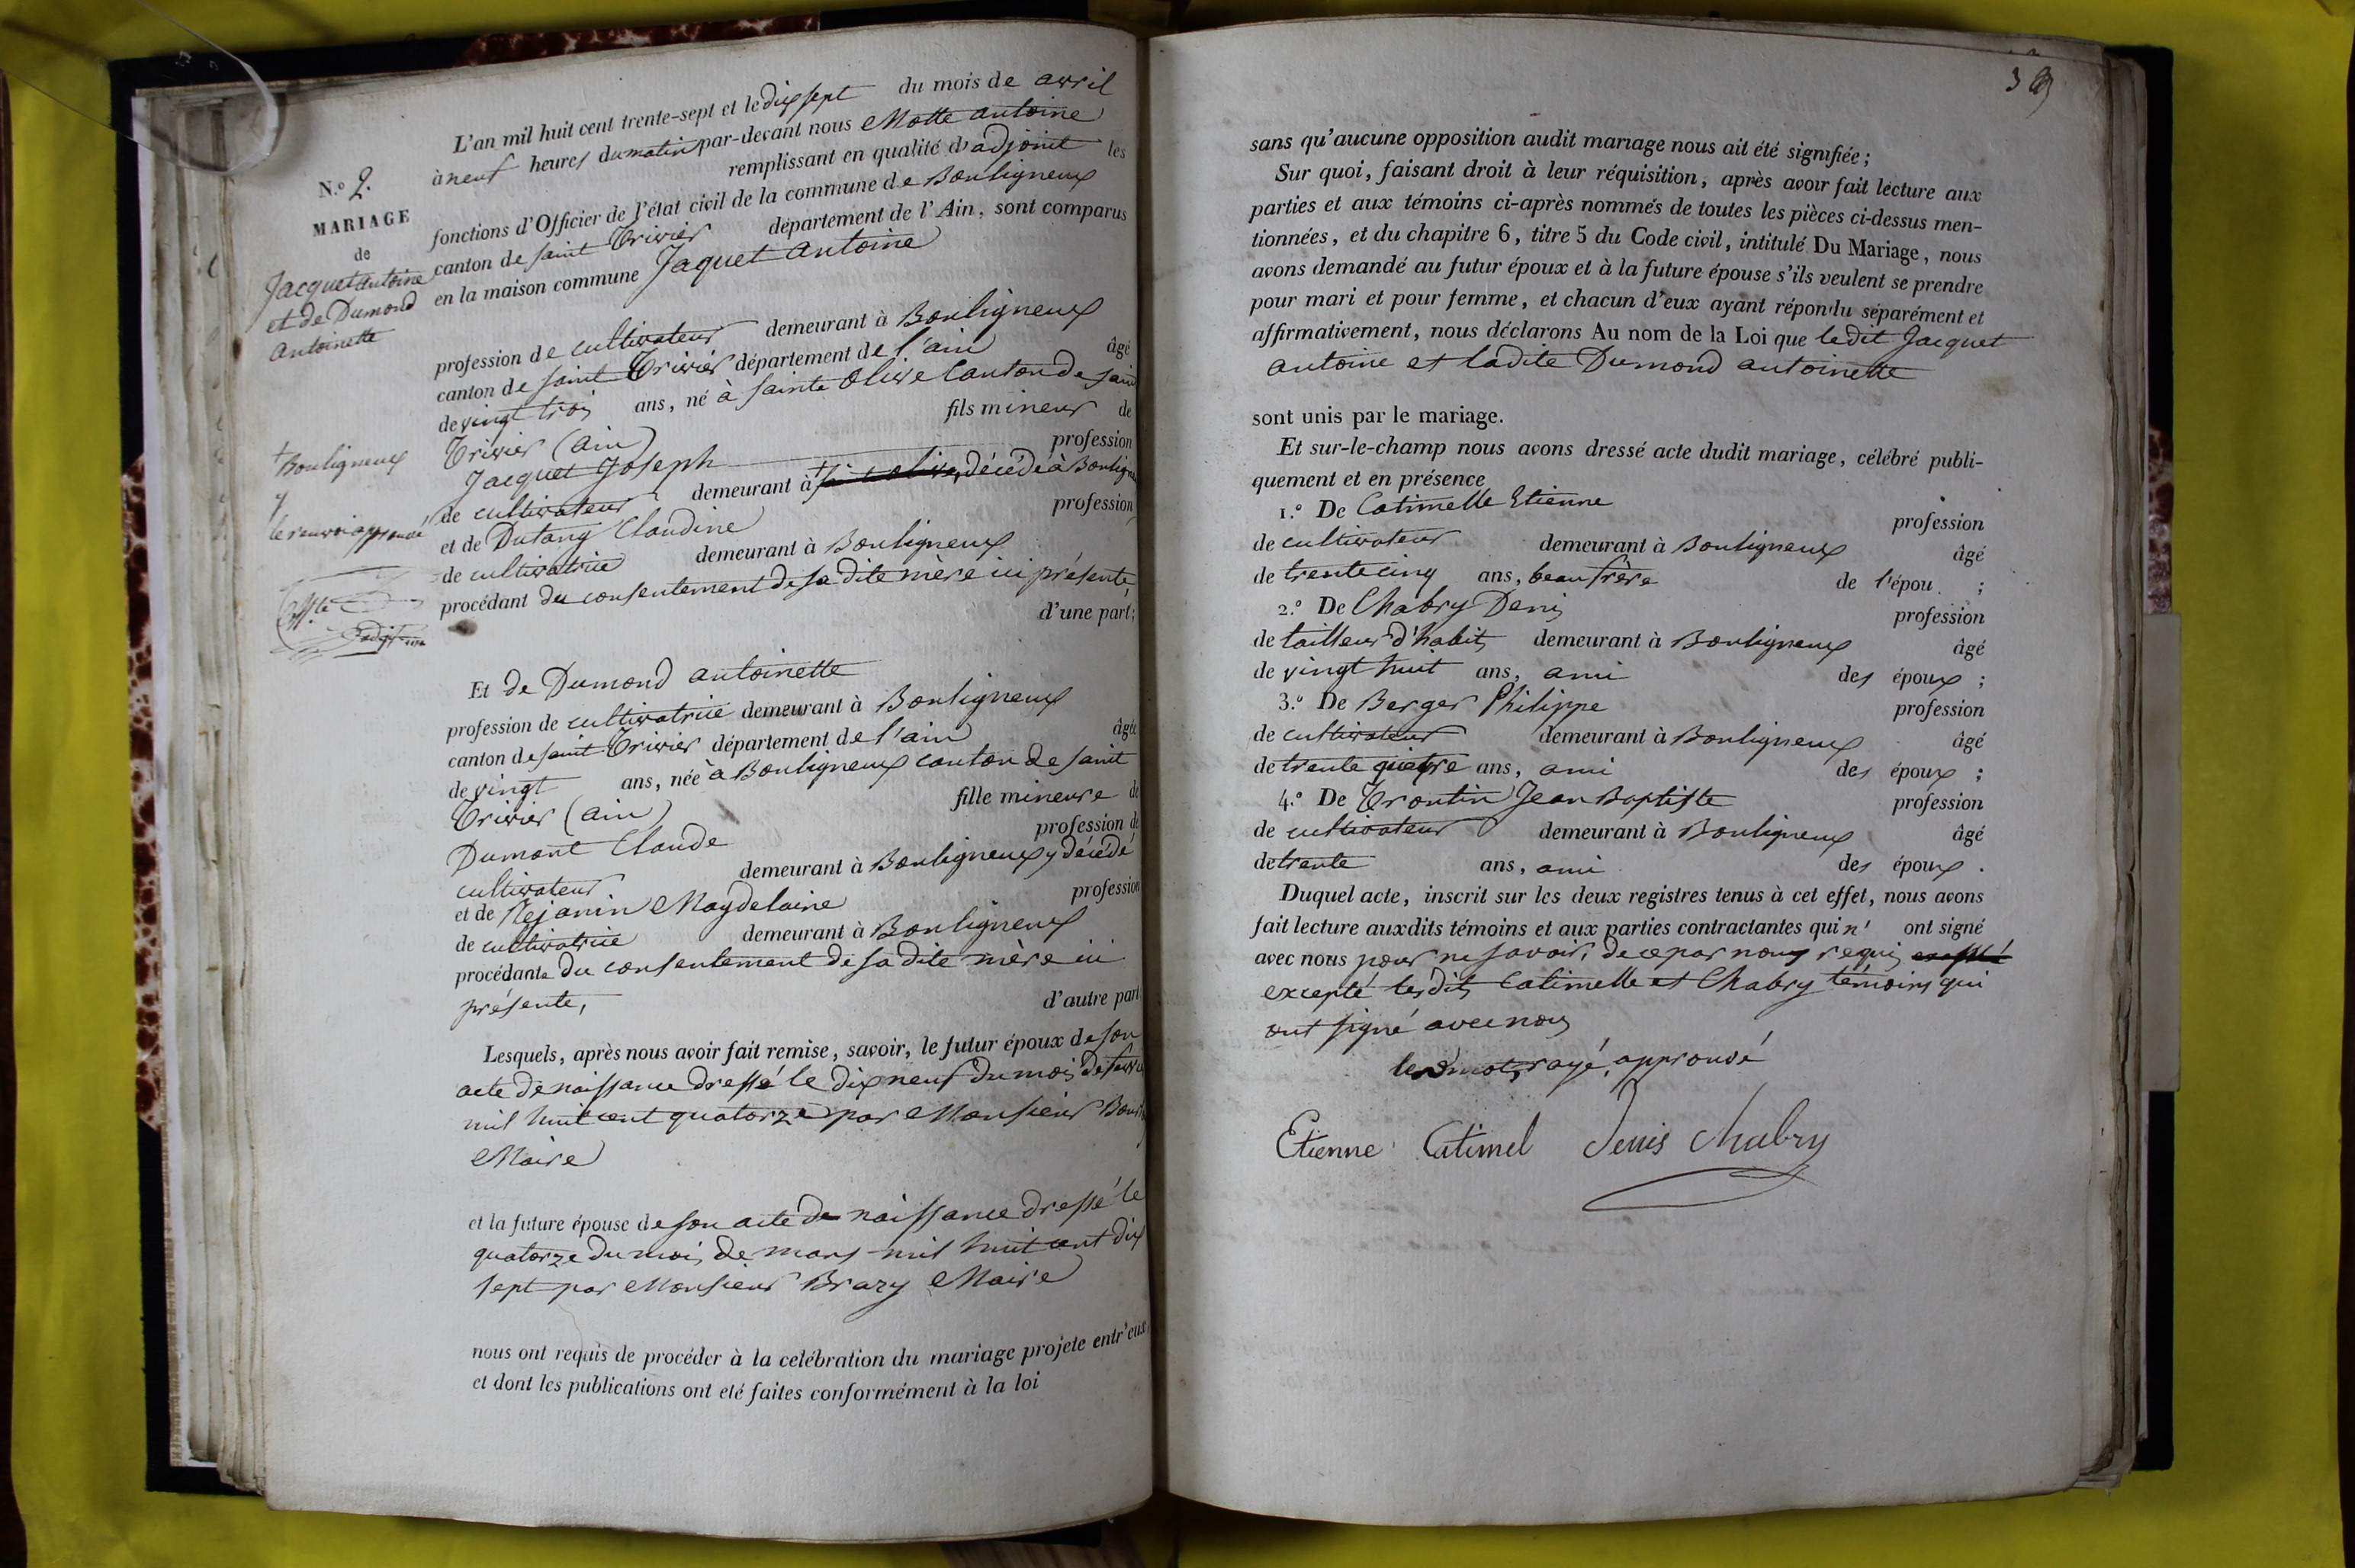 N.º 2.
MARIAGE
de
Jacquet antoine
et de Dumond
antoinette
+
Bouligneux
y
le renvoi approuvé
adjoint
L'an mil huit cent trente-sept et le dix sept du mois de avril
à neuf heures du matin par-devant nous Motte antoine
remplissant en qualité d'adjoint les
fonctions d'Officier de l'état civil de la commune de Bouligneux
canton de saint Trivier département de l'Ain, sont comparus
en la maison commune Jaquet antoine
profession de cultivateur demeurant à Bouligneux
canton de saint Trivier département de l'ain âgé
de vingt trois ans, né à sainte Olive Canton de saint
Trivier (ain) fils mineur de
Jacquet Joseph profession
de cultivateur demeurant à + décédé à Bouligneux
et de Dutang Claudine profession
de cultivatrice demeurant à Bouligneux
procédant du consentement de sa dite mère ici présente,
d'une part;
Et de Dumond antoinette
profession de cultivatrice demeurant à Bouligneux
canton de saint Trivier département de l'ain âgée
de vingt ans, née à Bouligneux canton de saint
Trivier (ain) fille mineure de
Dumont Claude profession de
cultivateur demeurant à Bouligneux y décédé
et de Nejanin Magdelaine profession
de cultivatrice demeurant à Bouligneux
procédante du consentement de sa dite mère ici
présente, d'autre part
Lesquels, après nous avoir fait remise, savoir, le futur époux de son
acte de naissance dressé le dix neuf du mois de
mil huit cent quatorze par Monsieur
Maire
et la future épouse de son acte de naissance dressé le
quatorze du mois de mars mil huit cent dix
sept par Monsieur Brazy Maire
nous ont requis de procéder à la celébration du mariage projeté entr'eux,
et dont les publications ont eté faites conformément à la loi
sans qu'aucune opposition audit mariage nous ait été signifiée;
Sur quoi, faisant droit à leur réquisition, après avoir fait lecture aux
parties et aux témoins ci-après nommés de toutes les pièces ci-dessus men-
tionnées, et du chapitre 6, titre 5 du Code civil, intitulé Du Mariage, nous
avons demandé au futur époux et à la future épouse s'ils veulent se prendre
pour mari et pour femme, et chacun d'eux ayant répondu séparément et
affirmativement, nous déclarons Au nom de la Loi que ledit Jacquet
antoine et ladite Dumond antoinette
sont unis par le mariage.
Et sur-le-champ nous avons dressé acte dudit mariage, célébré publi-
quement et en présence
1.º De Catimelle Etienne profession
de cultivateur demeurant à Bouligneux âgé
de trente cinq ans, beau frère de l'épou ;
2.º De Chabry Denis profession
de tailleur d'habits demeurant à Bouligneux âgé
de vingt huit ans, ami des époux ;
3.º De Berger Philippe profession
de cultivateur demeurant à Bouligneux âgé
de trente quatre ans, ami des époux ;
4.º De Trontin Jean Baptiste profession
de cultivateur demeurant à Bouligneux âgé
de trente ans, ami des époux .
Duquel acte, inscrit sur les deux registres tenus à cet effet, nous avons
fait lecture auxdits témoins et aux parties contractantes qui n' ont signé
avec nous pour ne savoir, de ce par nous requis
excepté lesdits Catimelle et Chabry témoins qui
ont signé avec nous
les mots rayé, approuvé
Etienne Catimel Denis Chabry